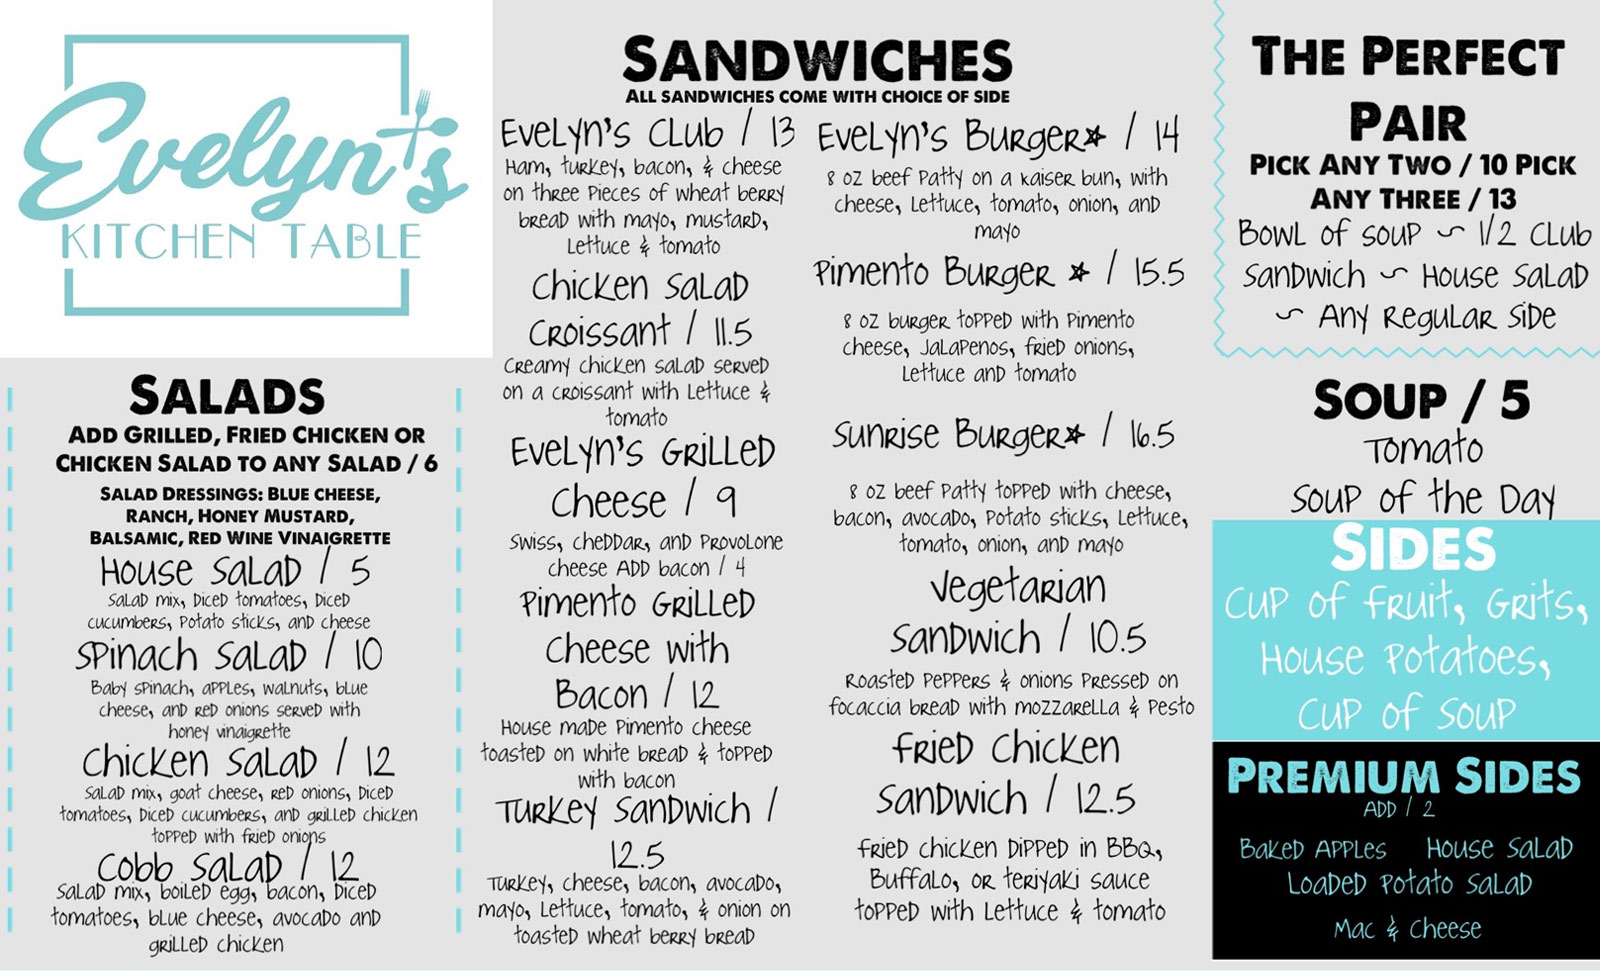 Evelyn's
KITCHEN TABLE
SALADS
ADD GRILLED, FRIED CHICKEN OR
CHICKEN SALAD TO ANY SALAD / 6
SALAD DRESSINGS: BLUE CHEESE,
RANCH, HONEY MUSTARD,
BALSAMIC, RED WINE VINAIGRETTE
House Salad / 5
Salad mix, diced tomatoes, diced
cucumbers, potato sticks, and cheese
Spinach Salad / 10
Baby spinach, apples, walnuts, blue
cheese, and red onions served with
honey vinaigrette
Chicken Salad / 12
Salad mix, goat cheese, red onions, diced
tomatoes, diced cucumbers, and grilled chicken
topped with fried onions
Cobb Salad / 12
Salad mix, boiled egg, bacon, diced
tomatoes, blue cheese, avocado and
grilled chicken
SANDWICHES
ALL SANDWICHES COME WITH CHOICE OF SIDE
Evelyn's Club / 13
Ham, turkey, bacon, & cheese
on three pieces of wheat berry
bread with mayo, mustard,
lettuce & tomato
Chicken Salad
Croissant / 11.5
Creamy chicken salad served
on a croissant with lettuce &
tomato
Evelyn's Grilled
Cheese / 9
Swiss, cheddar, and provolone
cheese ADD bacon / 4
Pimento Grilled
Cheese with
Bacon / 12
House made pimento cheese
toasted on white bread & topped
with bacon
Turkey Sandwich /
12.5
Turkey, cheese, bacon, avocado,
mayo, lettuce, tomato, & onion on
toasted wheat berry bread
Evelyn's Burger* / 14
8 oz beef patty on a kaiser bun, with
cheese, lettuce, tomato, onion, and
mayo
Pimento Burger * / 15.5
8 oz burger topped with pimento
cheese, jalapenos, fried onions,
lettuce and tomato
Sunrise Burger* / 16.5
8 oz beef patty topped with cheese,
bacon, avocado, potato sticks, lettuce,
tomato, onion, and mayo
Vegetarian
Sandwich / 10.5
Roasted peppers & onions pressed on
focaccia bread with mozzarella & pesto
Fried Chicken
Sandwich / 12.5
Fried chicken dipped in BBQ,
Buffalo, or teriyaki sauce
topped with lettuce & tomato
THE PERFECT
PAIR
PICK ANY TWO / 10 PICK
ANY THREE / 13
Bowl of soup ~ 1/2 Club
Sandwich ~ House Salad
~ Any Regular Side
SOUP / 5
Tomato
Soup of the Day
SIDES
Cup of Fruit, Grits,
House Potatoes,
Cup of Soup
PREMIUM SIDES
ADD / 2
Baked Apples House Salad
Loaded Potato Salad
Mac & Cheese